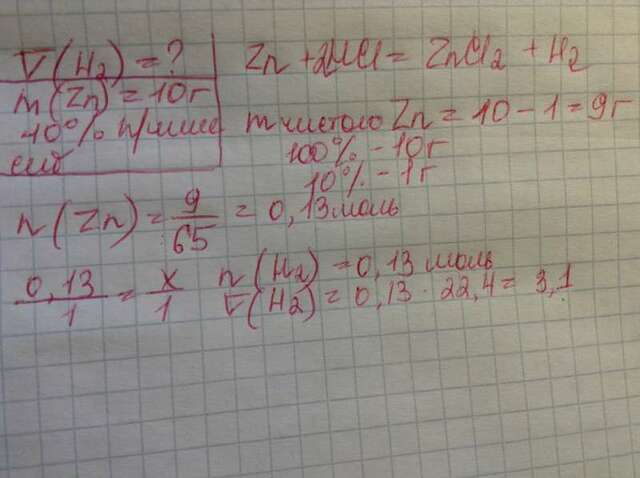 V(H₂) = ?
m(Zn) = 10г
10% примесей
Zn + 2HCl = ZnCl₂ + H₂
m чистого Zn = 10 - 1 = 9г
100% - 10г
10% - 1г
n(Zn) = 9/65 = 0,13 моль
0,13/1 = x/1
n(H₂) = 0,13 моль
V(H₂) = 0,13 · 22,4 = 3,1